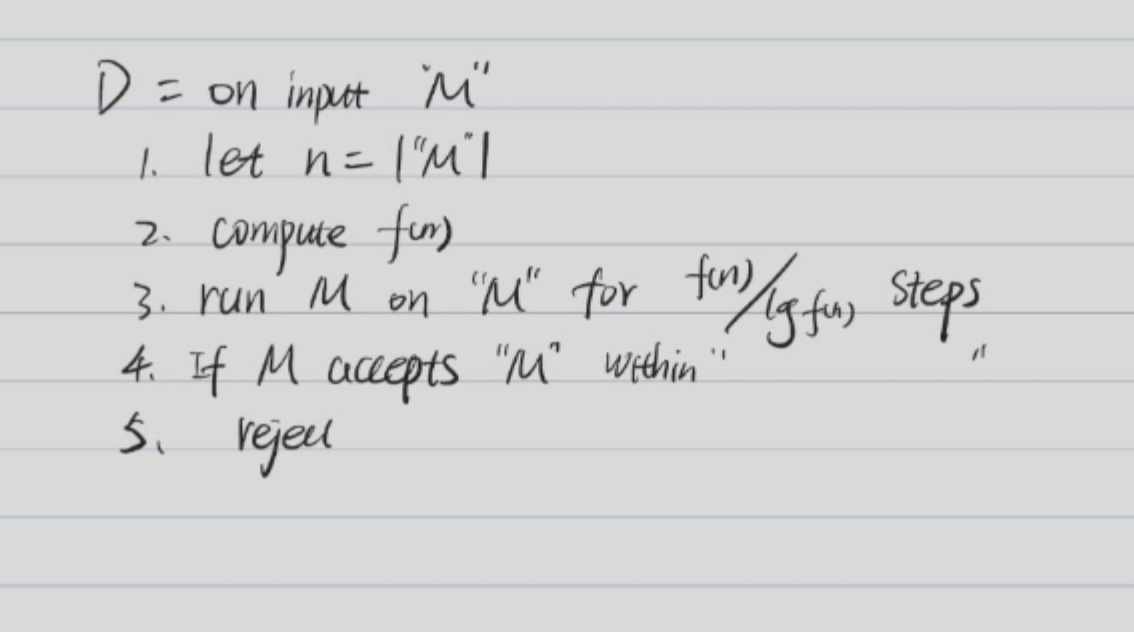 D = on input "M"
1. let n = |"M"|
2. compute f(n)
3. run M on "M" for f(n)/lg f(n) steps
4. If M accepts "M" within " "
5. reject